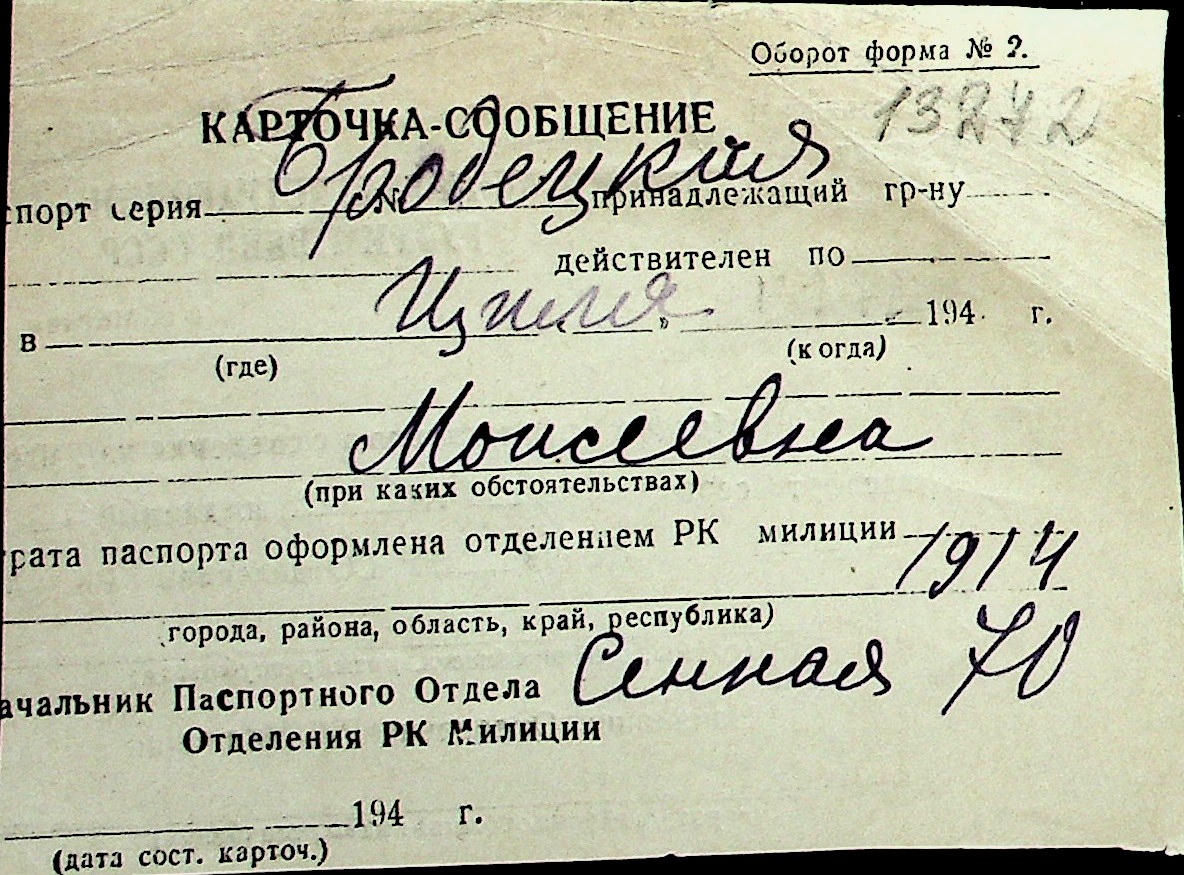 Оборот форма № 2.
13272
КАРТОЧКА-СООБЩЕНИЕ
Бродецкая
спорт серия № принадлежащий гр-ну
действителен по
Ципля
в „ 194 г.
(где) (когда)
Моисеевна
(при каких обстоятельствах)
трата паспорта оформлена отделением РК милиции
1914
города, района, область, край, республика)
ачальник Паспортного Отдела Сенная 70
Отделения РК Милиции
194 г.
(дата сост. карточ.)